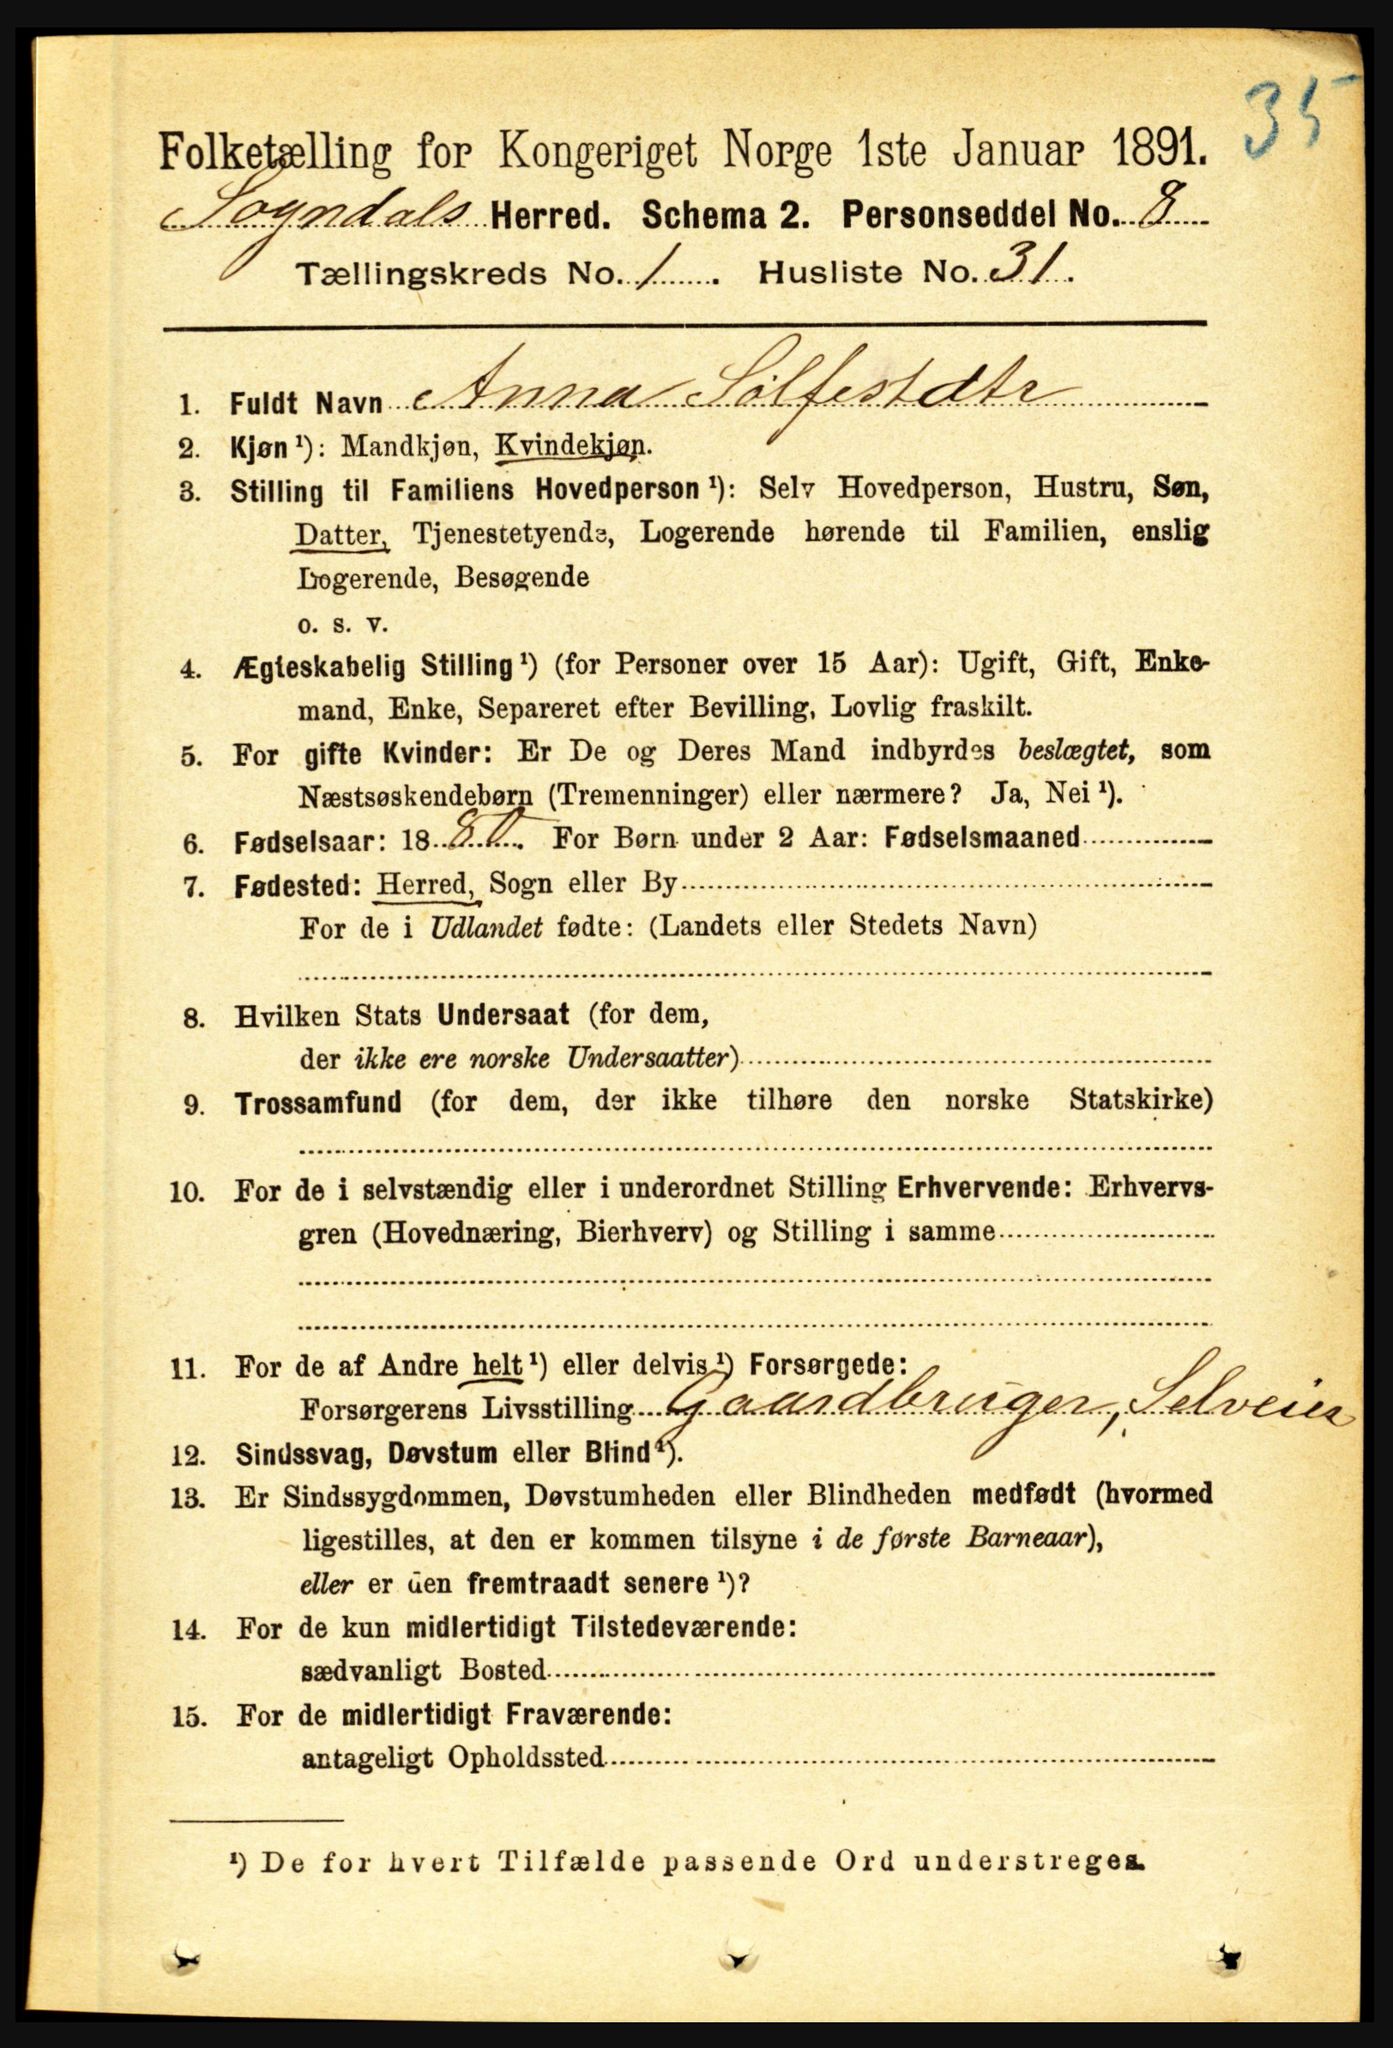 35
Folketælling for Kongeriget Norge 1ste Januar 1891.
Sogndals Herred. Schema 2. Personseddel No. 8
Tællingskreds No. 1. Husliste No. 31.
1. Fuldt Navn Anna Sølfestdtr
2. Kjøn ¹): Mandkjøn, Kvindekjøn.
3. Stilling til Familiens Hovedperson ¹): Selv Hovedperson, Hustru, Søn,
Datter, Tjenestetyende, Logerende hørende til Familien, enslig
Logerende, Besøgende
o. s. v.
4. Ægteskabelig Stilling ¹) (for Personer over 15 Aar): Ugift, Gift, Enke-
mand, Enke, Separeret efter Bevilling, Lovlig fraskilt.
5. For gifte Kvinder: Er De og Deres Mand indbyrdes beslægtet, som
Næstsøskendebørn (Tremenninger) eller nærmere? Ja, Nei ¹).
6. Fødselsaar: 1880. For Børn under 2 Aar: Fødselsmaaned
7. Fødested: Herred, Sogn eller By
For de i Udlandet fødte: (Landets eller Stedets Navn)
8. Hvilken Stats Undersaat (for dem,
der ikke ere norske Undersaatter)
9. Trossamfund (for dem, der ikke tilhøre den norske Statskirke)
10. For de i selvstændig eller i underordnet Stilling Erhvervende: Erhvervs-
gren (Hovednæring, Bierhverv) og Stilling i samme
11. For de af Andre helt ¹) eller delvis ¹) Forsørgede:
Forsørgerens Livsstilling Gaardbruger, Selveier
12. Sindssvag, Døvstum eller Blind ¹).
13. Er Sindssygdommen, Døvstumheden eller Blindheden medfødt (hvormed
ligestilles, at den er kommen tilsyne i de første Barneaar),
eller er den fremtraadt senere ¹)?
14. For de kun midlertidigt Tilstedeværende:
sædvanligt Bosted
15. For de midlertidigt Fraværende:
antageligt Opholdssted
¹) De for hvert Tilfælde passende Ord understreges.